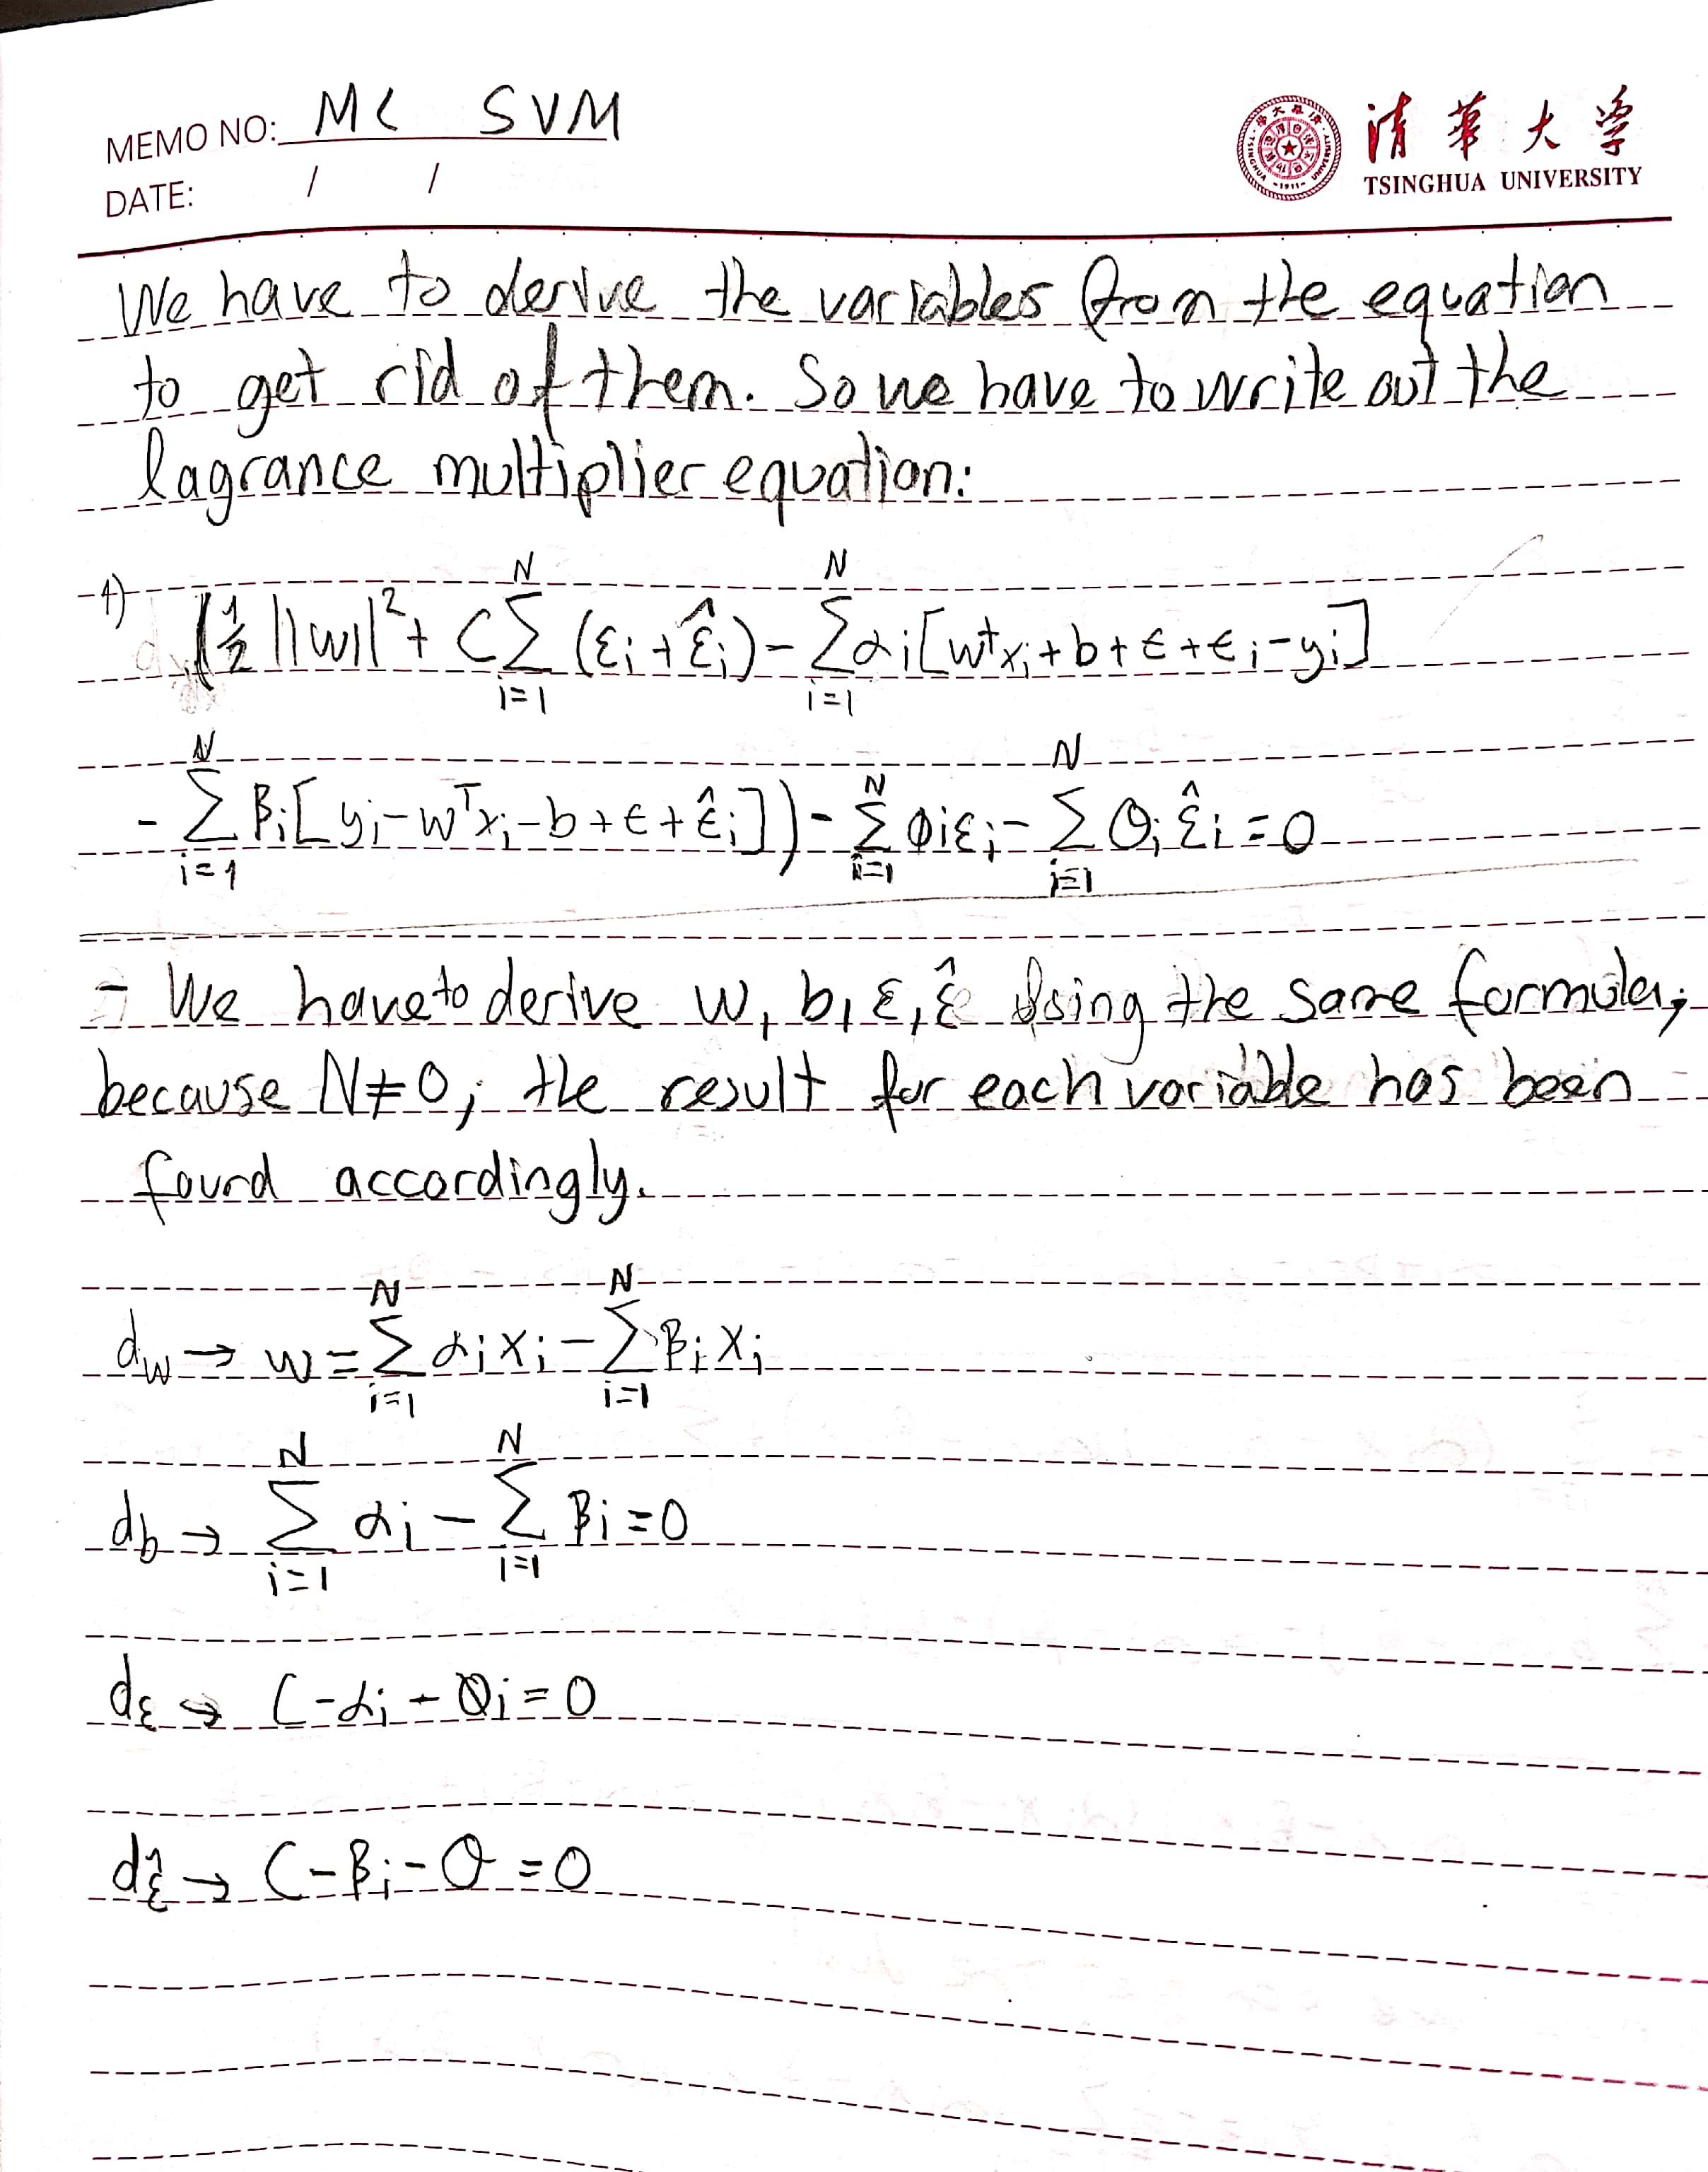 MEMO NO: ML SVM
DATE: / /
清華大学
TSINGHUA UNIVERSITY
We have to derive the variables from the equation
to get rid of them. So we have to write out the
lagrance multiplier equation:
1) (1/2 ||w||² + C∑_{i=1}^{N} (ε_i + ε̂_i) - ∑_{i=1}^{N} α_i[wᵀx_i + b + ϵ + ϵ_i - y_i]
- ∑_{i=1}^{N} β_i[y_i - wᵀx_i - b + ϵ + ε̂_i]) - ∑_{i=1}^{N} Φ_iε_i - ∑_{i=1}^{N} θ_i ε̂_i = 0
- We have to derive w, b, ε, ε̂ using the same formula;
because N≠0; the result for each variable has been
found accordingly.
d_w → w = ∑_{i=1}^{N} α_i x_i - ∑_{i=1}^{N} β_i x_i
d_b → ∑_{i=1}^{N} α_i - ∑_{i=1}^{N} β_i = 0
d_ε → C - α_i - Φ_i = 0
d_ε̂ → C - β_i - θ = 0